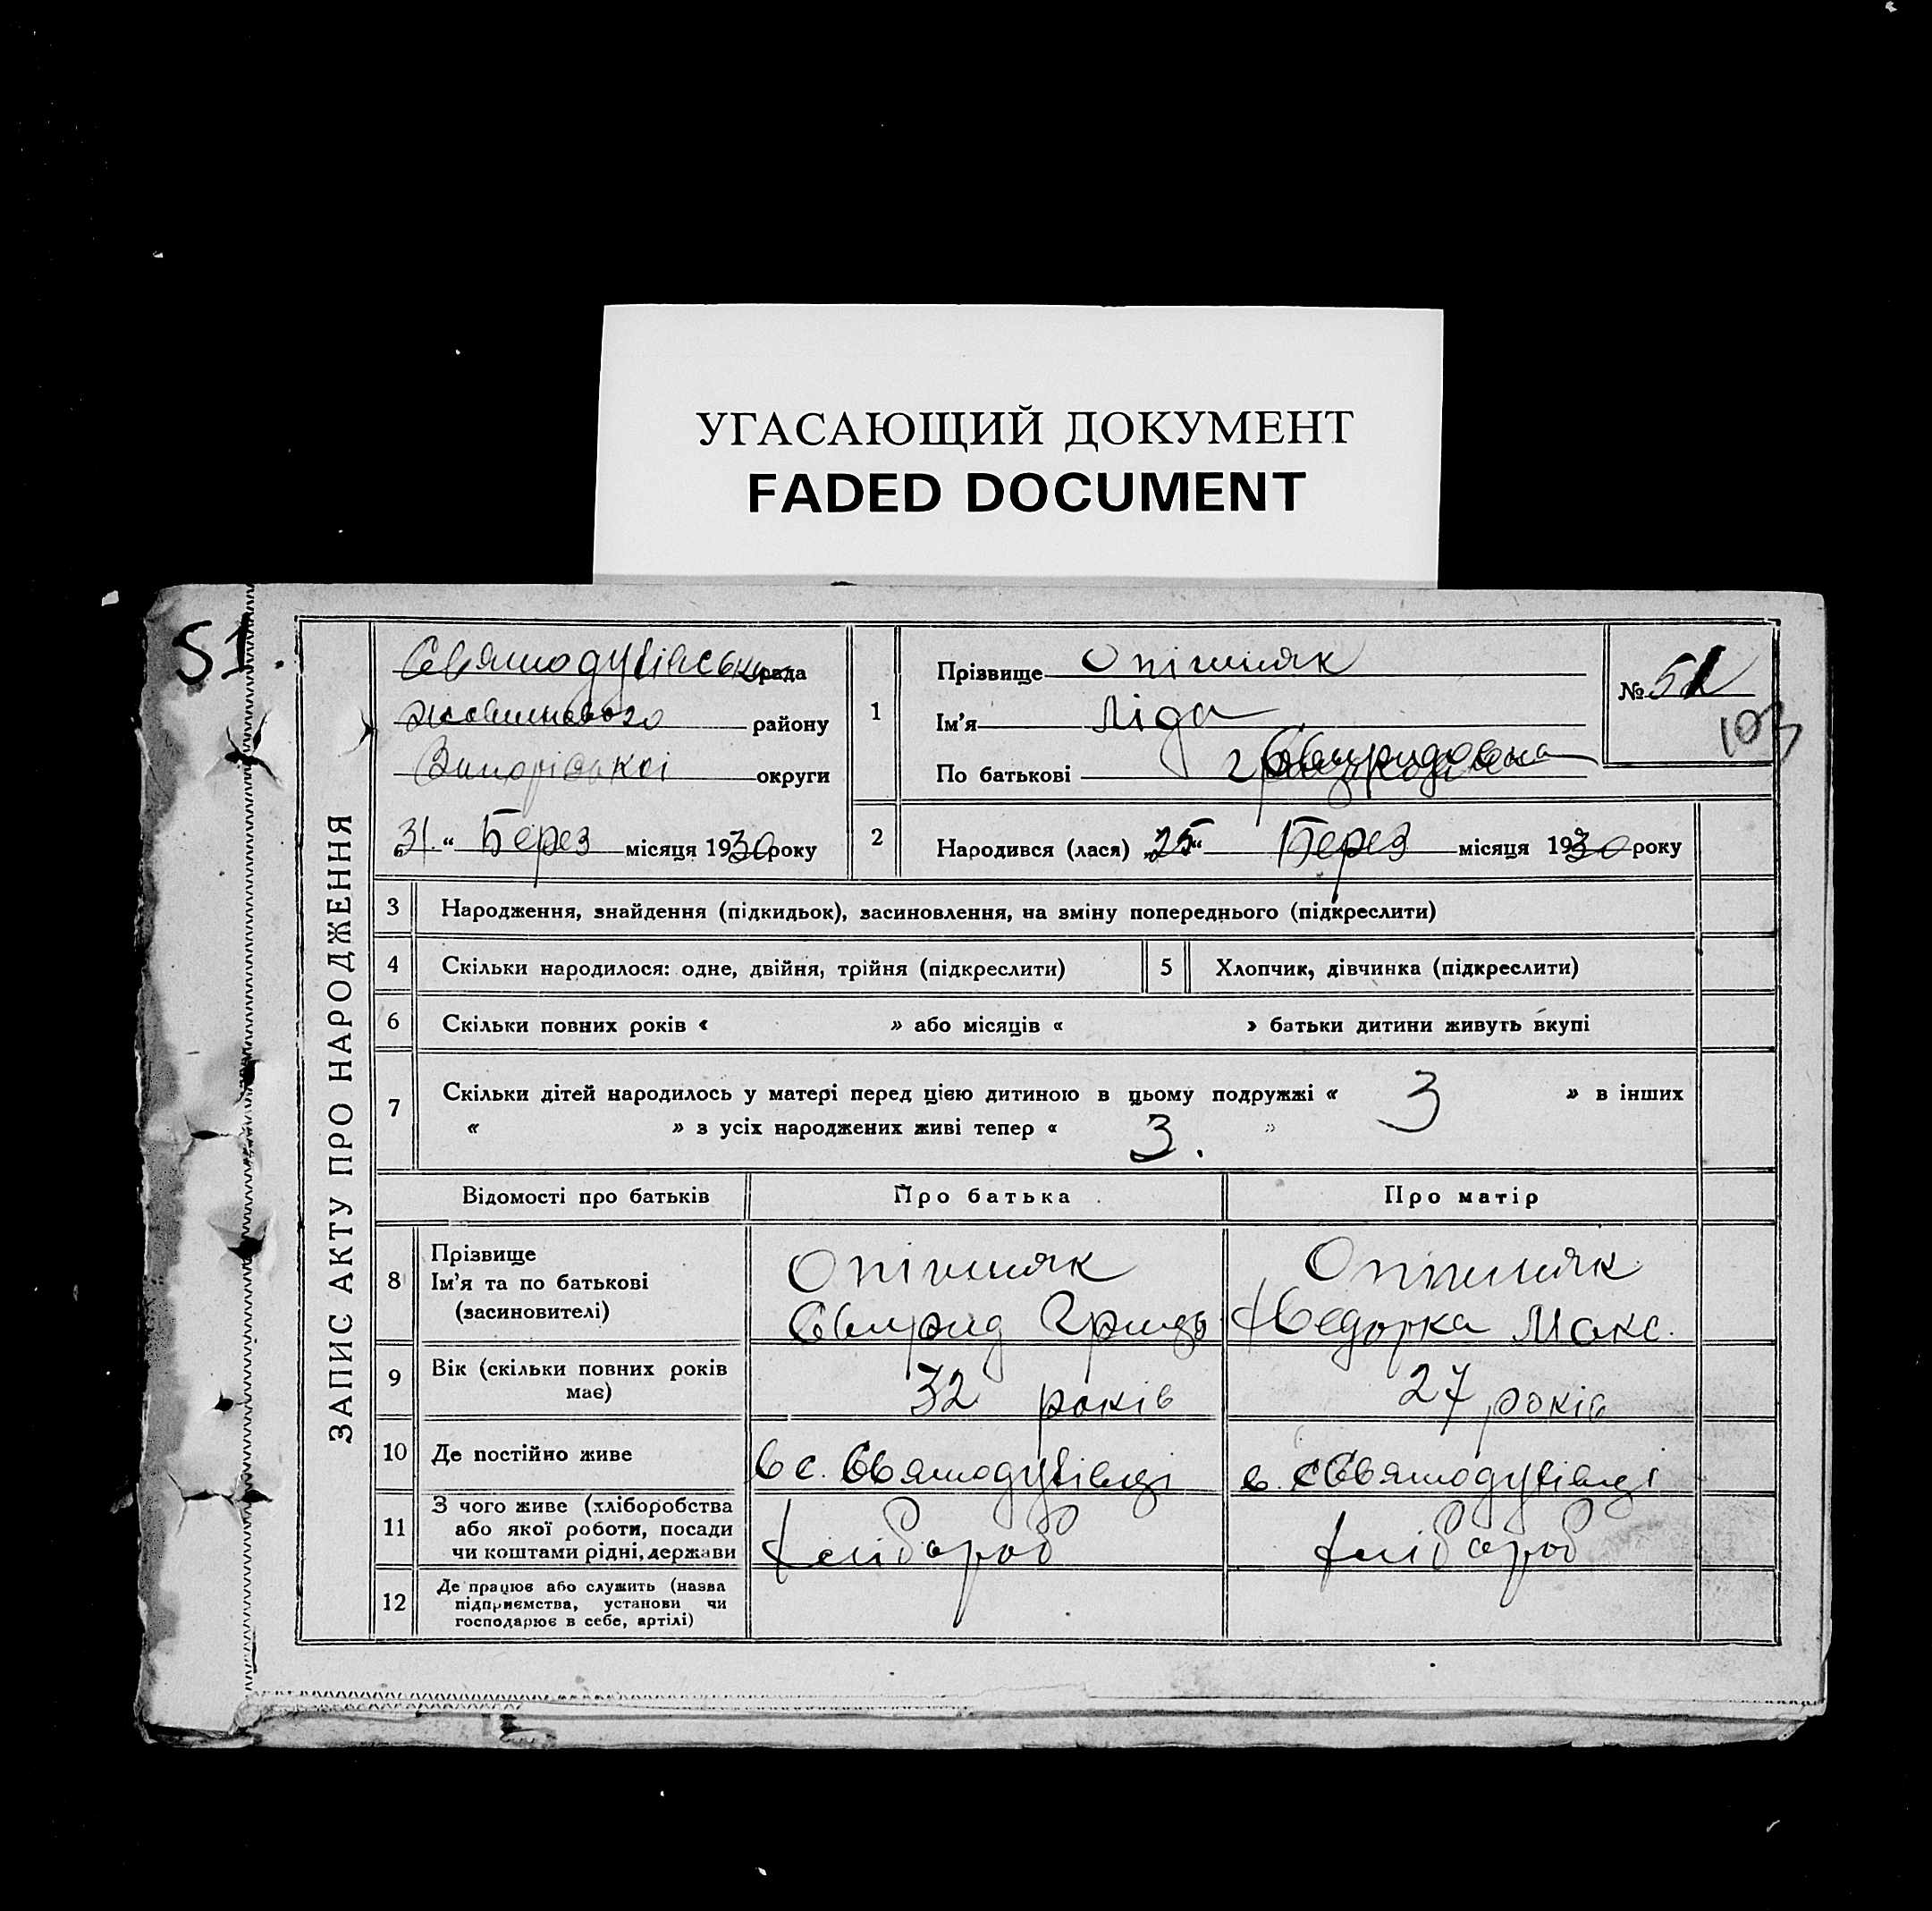 УГАСАЮЩИЙ ДОКУМЕНТ
FADED DOCUMENT
51.
ЗАПИС АКТУ ПРО НАРОДЖЕННЯ
Святодухівська рада
Жовтневого району
округи
„31.“ Берез місяця 1930 року
1
Прізвище Опішняк
Ім’я Ліда
По батькові Свиридовна
№ 51
103
2
Народився (лася) „25“ Берез місяця 1930 року
3 Народження, знайдення (підкидьок), засиновлення, на зміну попереднього (підкреслити)
4 Скільки народилося: одне, двійня, трійня (підкреслити) 5 Хлопчик, дівчинка (підкреслити)
6 Скільки повних років « » або місяців « » батьки дитини живуть вкупі
7 Скільки дітей народилось у матері перед цією дитиною в цьому подружжі « 3 » в інших
« » з усіх народжених живі тепер « 3. »
Відомості про батьків Про батька Про матір
8 Прізвище
Ім’я та по батькові
(засиновителі)
Опішняк
Свирид Григ
Опішняк
Федорка Макс.
9 Вік (скільки повних років
має)
32 років
27 років
10 Де постійно живе
в с. Святодухівці
в. с Святодухівці
11 З чого живе (хліборобства
або якої роботи, посади
чи коштами рідні, держави
хлібороб
хлібороб
12 Де працює або служить (назва
підприємства, установи чи
господарює в себе, артілі)